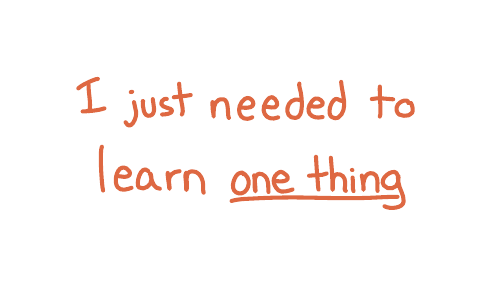 I just needed to
learn one thing